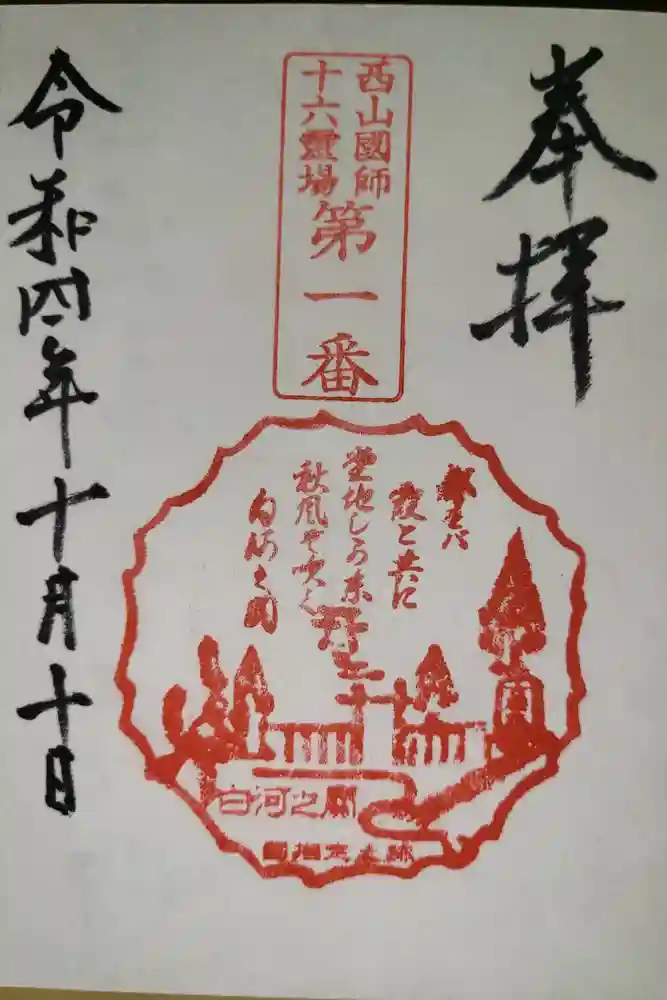 奉拝
西山國師
十六靈場
第一番
霞と共に
秋風
吹く
白河之関
白河之關
指定
跡
令和四年十月十日